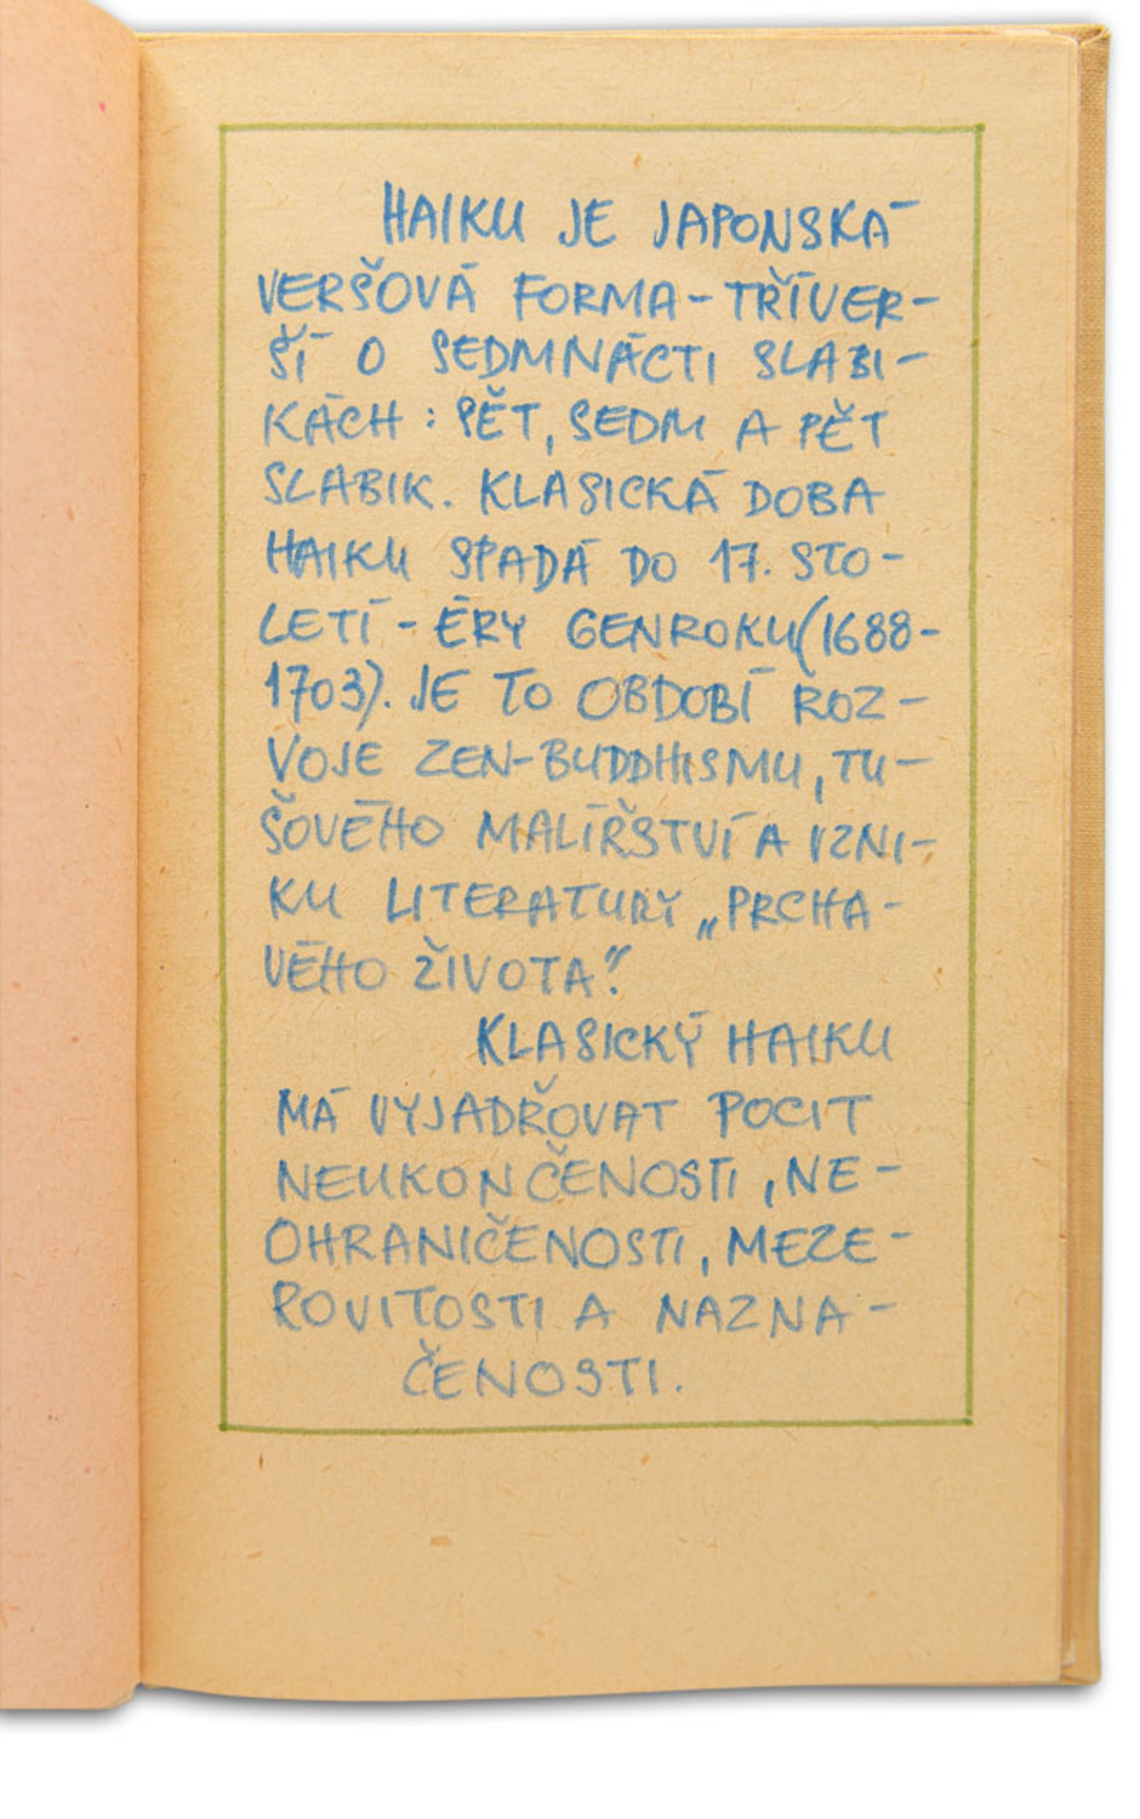 HAIKU JE JAPONSKÁ
VERŠOVÁ FORMA - TŘÍVER-
ŠÍ O SEDMNÁCTI SLABI-
KÁCH : PĚT, SEDM A PĚT
SLABIK. KLASICKÁ DOBA
HAIKU SPADÁ DO 17. STO-
LETÍ - ÉRY GENROKU (1688-
1703). JE TO OBDOBÍ ROZ-
VOJE ZEN-BUDDHISMU, TU-
ŠOVÉHO MALÍŘSTVÍ A VZNI-
KU LITERATURY „PRCHA-
VÉHO ŽIVOTA."
KLASICKÝ HAIKU
MÁ VYJADŘOVAT POCIT
NEUKONČENOSTI, NE-
OHRANIČENOSTI, MEZE-
ROVITOSTI A NAZNA-
ČENOSTI.